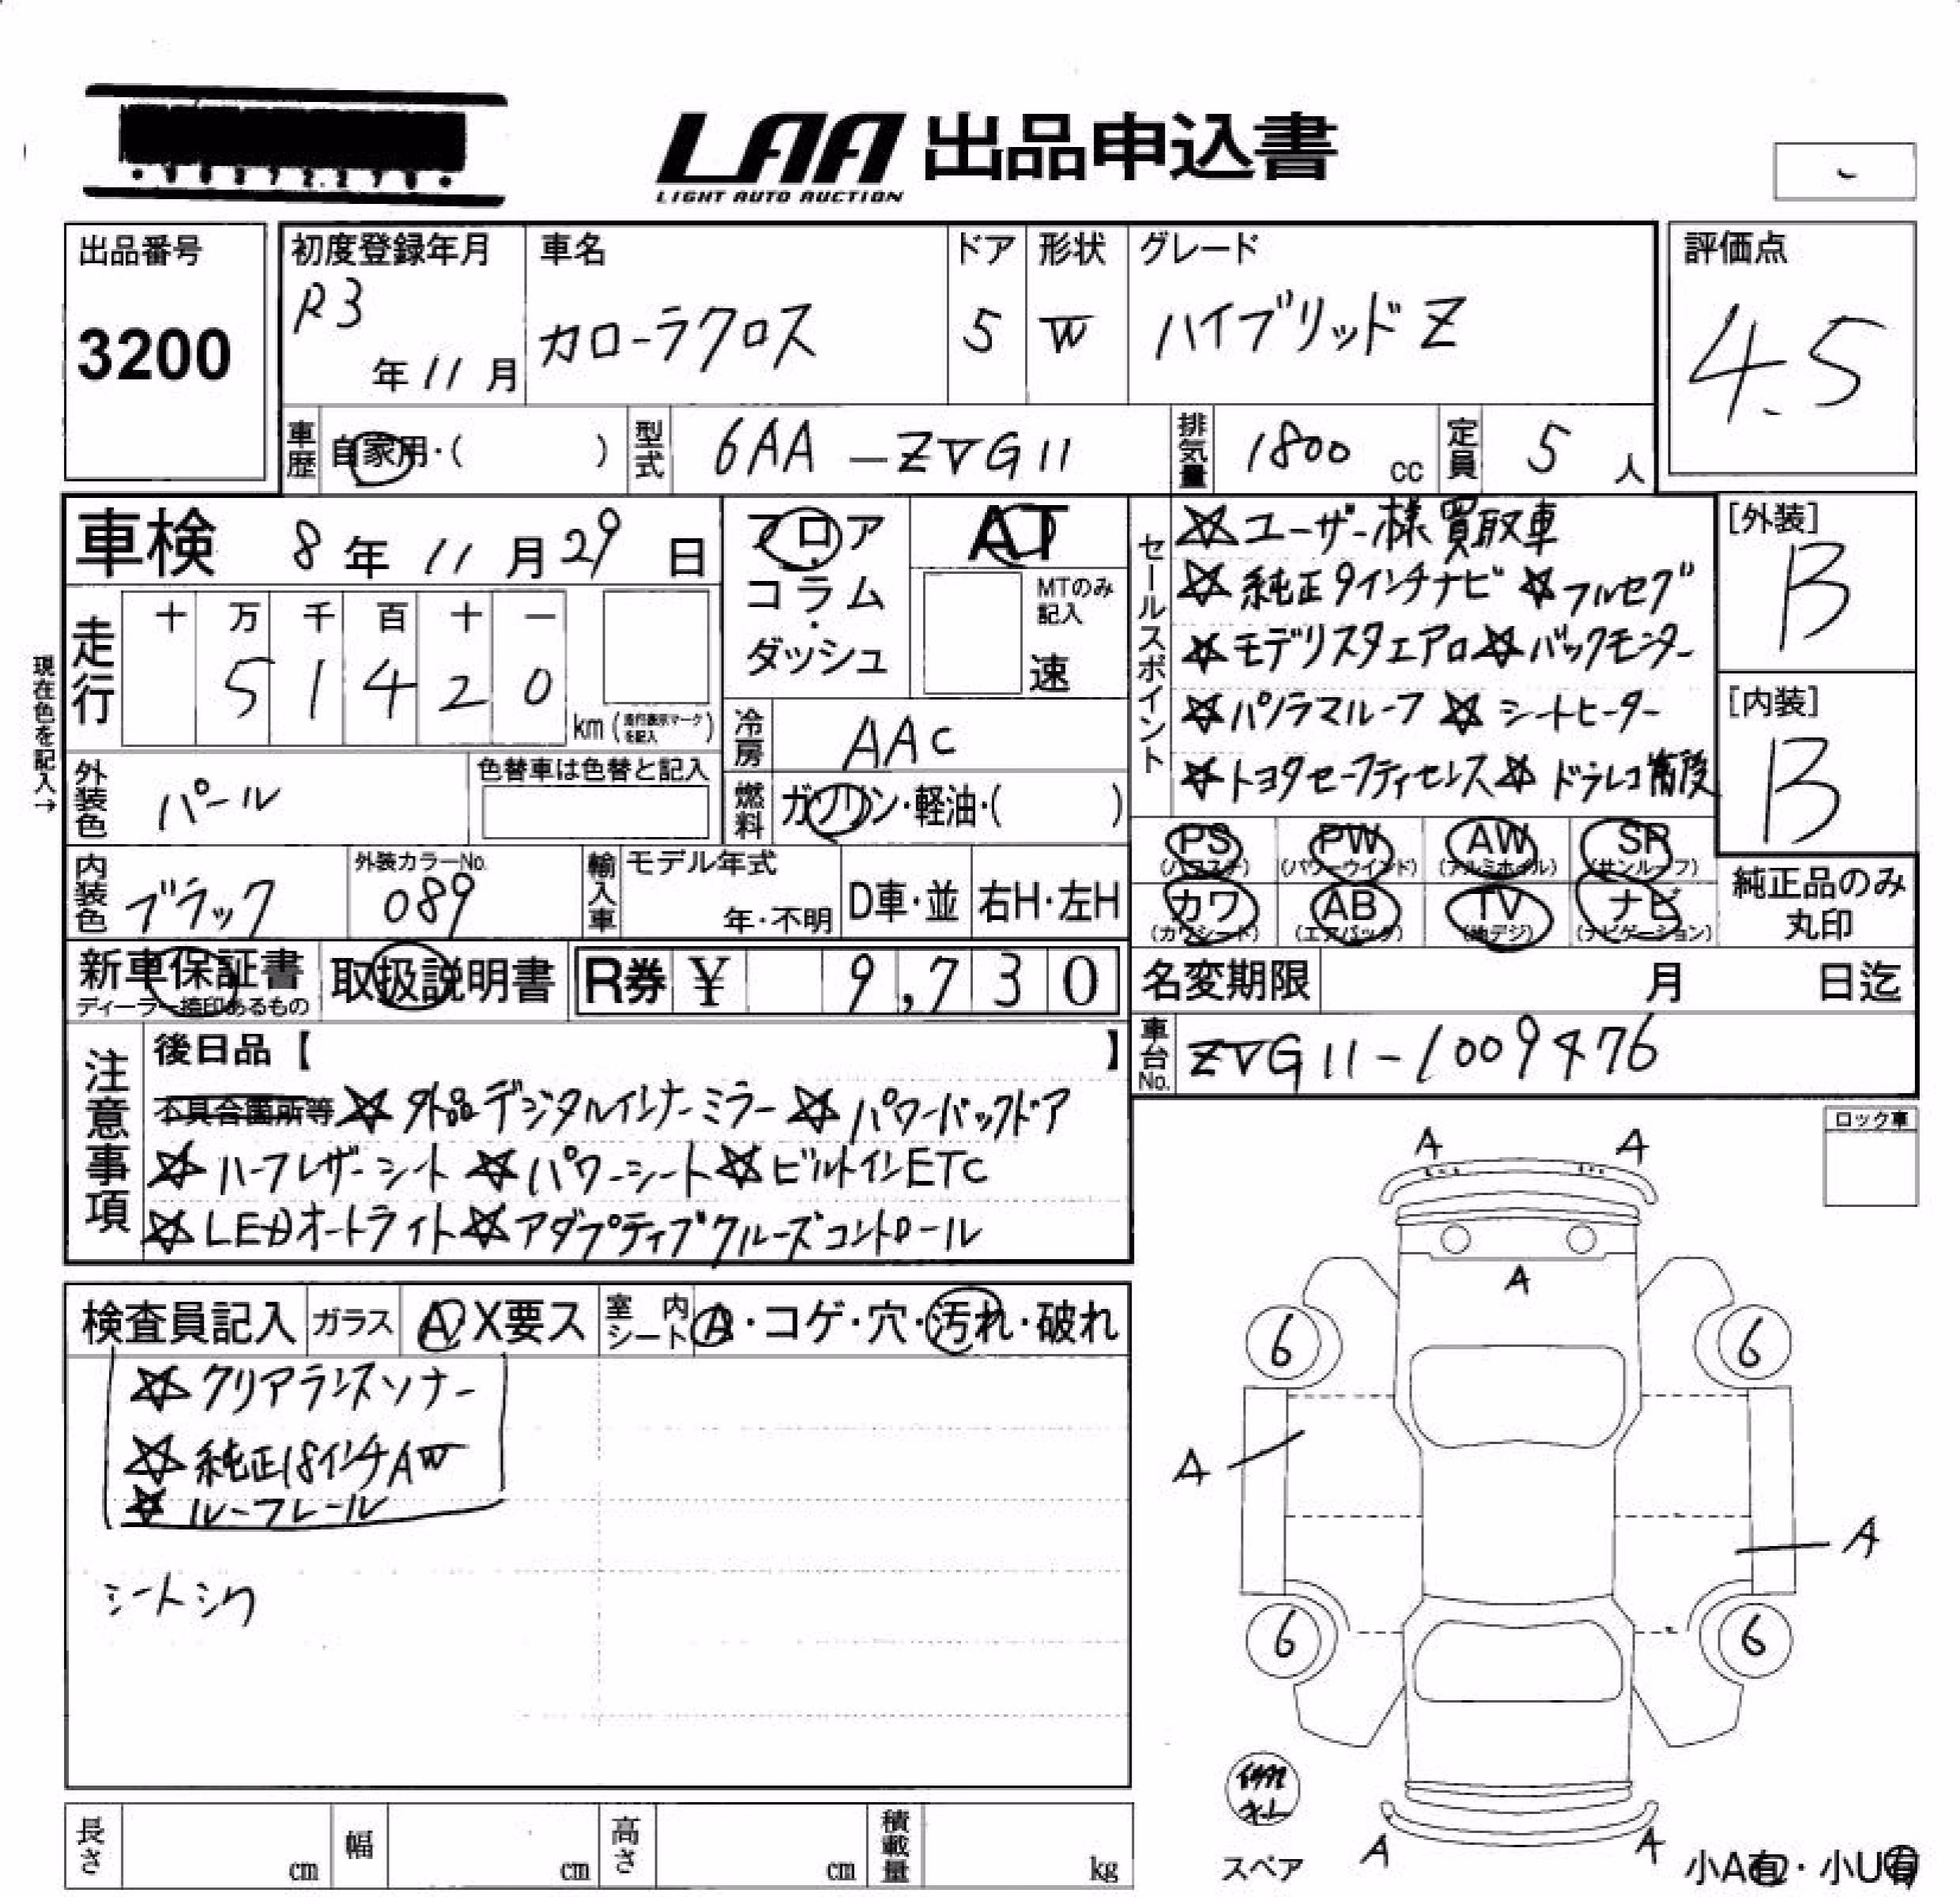 LAA 出品申込書
LIGHT AUTO AUCTION
出品番号
3200
初度登録年月
R3
年 11 月
車名
カローラクロス
ドア
5
形状
W
グレード
ハイブリッドZ
評価点
4.5
車歴 自家用・( )
型式 6AA-ZVG11
排気量 1800 cc
定員 5 人
車検 8年 11月 29日
フロア・コラム・ダッシュ
AT
MTのみ記入
速
走行
十 万 千 百 十 一
5 1 4 2 0
km (走行表示マークを記入)
現在色を記入→
冷房 AAC
燃料 ガソリン・軽油・( )
外装色 パール
色替車は色替と記入
内装色 ブラック
外装カラーNo.
089
輸入車
モデル年式
年・不明
D車・並
右H・左H
セールスポイント
☆ユーザー様買取車
☆純正9インチナビ ☆フルセグ
☆モデリスタエアロ ☆バックモニター
☆パノラマルーフ ☆シートヒーター
☆トヨタセーフティセンス ☆ドラレコ前後
[外装]
B
[内装]
B
PS (パワステ)
PW (パワーウインド)
AW (アルミホイル)
SR (サンルーフ)
カワ (カワシート)
AB (エアバック)
TV (地デジ)
ナビ (ナビゲーション)
純正品のみ丸印
新車保証書
ディーラー捺印あるもの
取扱説明書
R券 ¥ 9,730
名変期限 月 日迄
車台No. ZVG11-1009476
注意事項
後日品【 】
不具合箇所等 ☆外品デジタルインナーミラー ☆パワーバックドア
☆ハーフレザーシート ☆パワーシート ☆ビルトインETC
☆LEDオートライト ☆アダプティブクルーズコントロール
検査員記入
ガラス A X要ス
室内シート A・コゲ・穴・汚れ・破れ
☆クリアランスソナー
☆純正18インチAW
☆ルーフレール
シートシワ
ロック車
A A
A
6 6
A
A
6 6
スペア
A A
小A有・小U有
長さ cm
幅 cm
高さ cm
積載量 kg